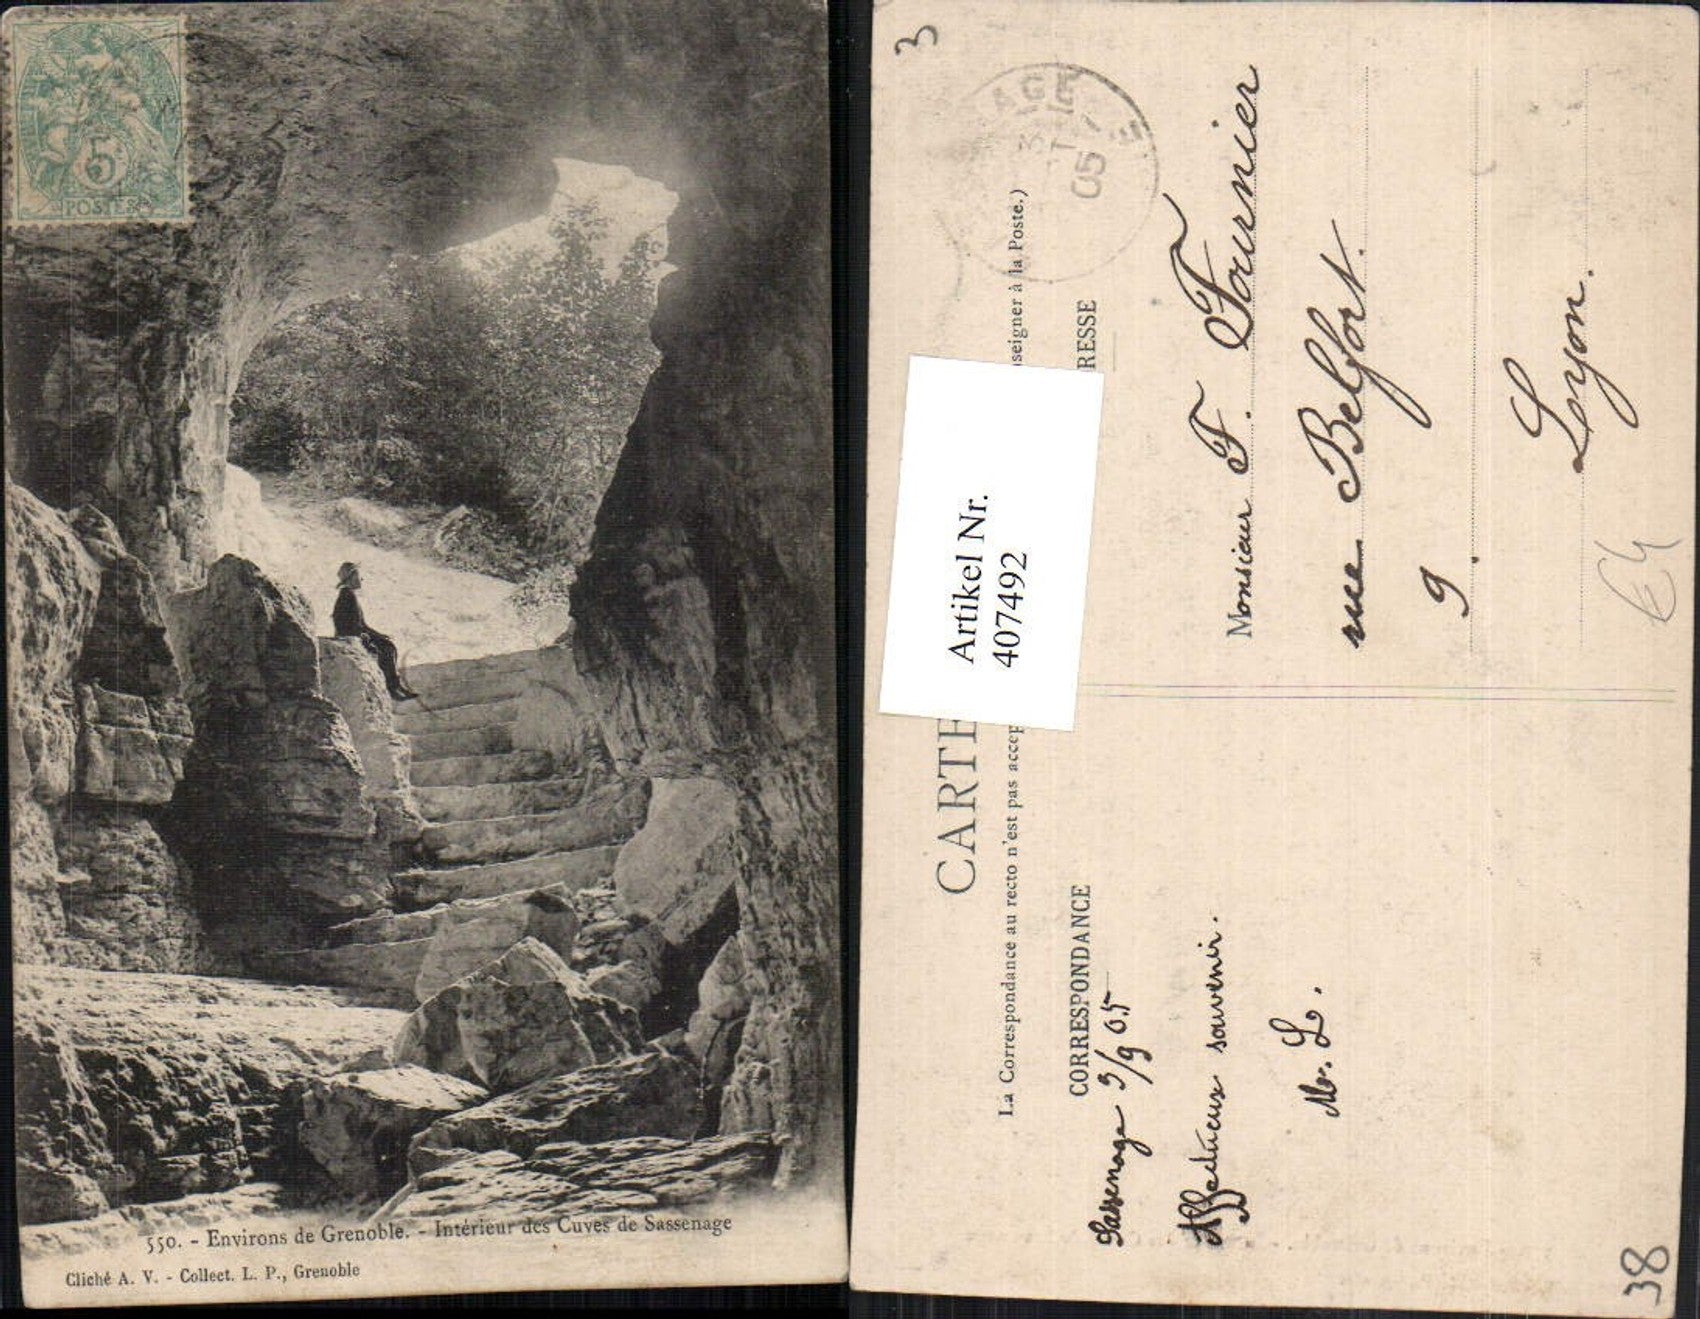 5
POSTES
550. - Environs de Grenoble. - Intérieur des Cuves de Sassenage
Cliché A. V. - Collect. L. P., Grenoble
3
AGE
3
05
CARTE
La Correspondance au recto n'est pas accep
seigner à la Poste.)
CORRESPONDANCE
RESSE
Artikel Nr.
407492
Sassenage 3/9 05
Affectueux souvenir.
M. L.
Monsieur F. Fournier
rue Belfort.
9.
Lyon.
38